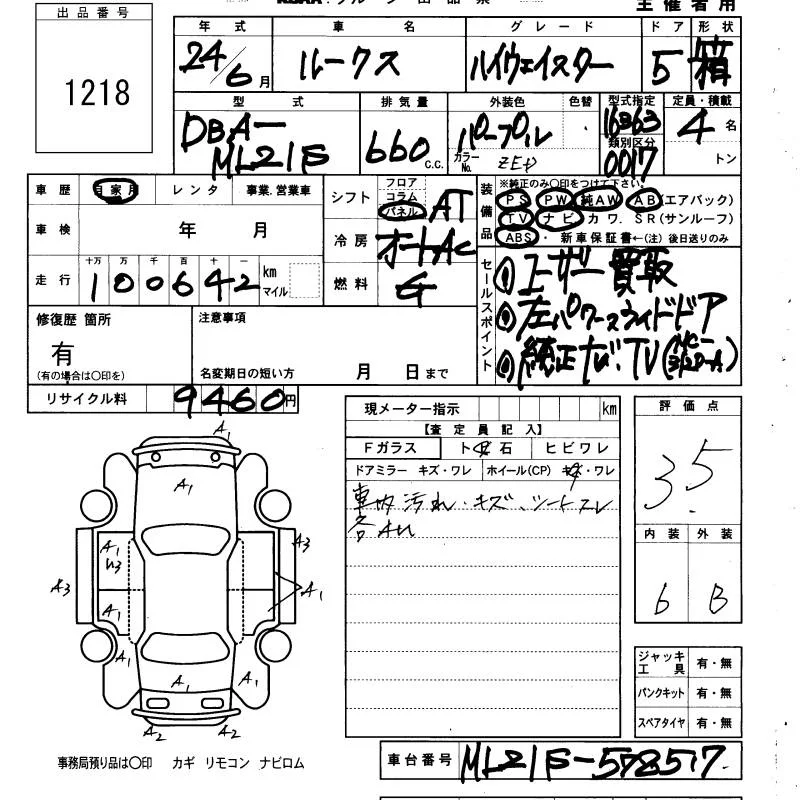 主催者用
出品番号
1218
年式 車名 グレード ドア 形状
24/6月 ルークス ハイウェイスター 5 箱
型式 排気量 外装色 色替 型式指定 定員・積載
類別区分
DBA-ML21S 660 c.c. パープル 16363 4名
カラーNo. 0017 トン
車歴 自家用 レンタ 事業.営業車
車検 年 月
走行 十万 万 千 百 十 一
100642 km マイル
シフト フロア コラム パネル AT
冷房 オートAC
燃料 G
装備品 ※純正のみ〇印をつけて下さい。
PS PW 純AW AB(エアバック)
TV ナビ カワ. SR(サンルーフ)
ABS ・ 新車保証書←(注)後日送りのみ
セールスポイント
ユーザー買取
左パワースライドドア
純正ナビ・TV
修復歴 箇所
有
(有の場合は〇印を)
注意事項
名変期日の短い方 月 日まで
リサイクル料 9460円
現メーター指示 km
【査定員記入】
Fガラス ト石 ヒビワレ
ドアミラー キズ・ワレ ホイール(CP) キズ・ワレ
車内汚れ・キズ、シートスレ
各AU
評価点
3.5
内装 外装
6 B
ジャッキ工具 有・無
パンクキット 有・無
スペアタイヤ 有・無
A1
A1
A1 A3
U3
A3 A1 A1
A1
A1 A1
A2 A2
事務局預り品は〇印 カギ リモコン ナビロム
車台番号 ML21S-578517